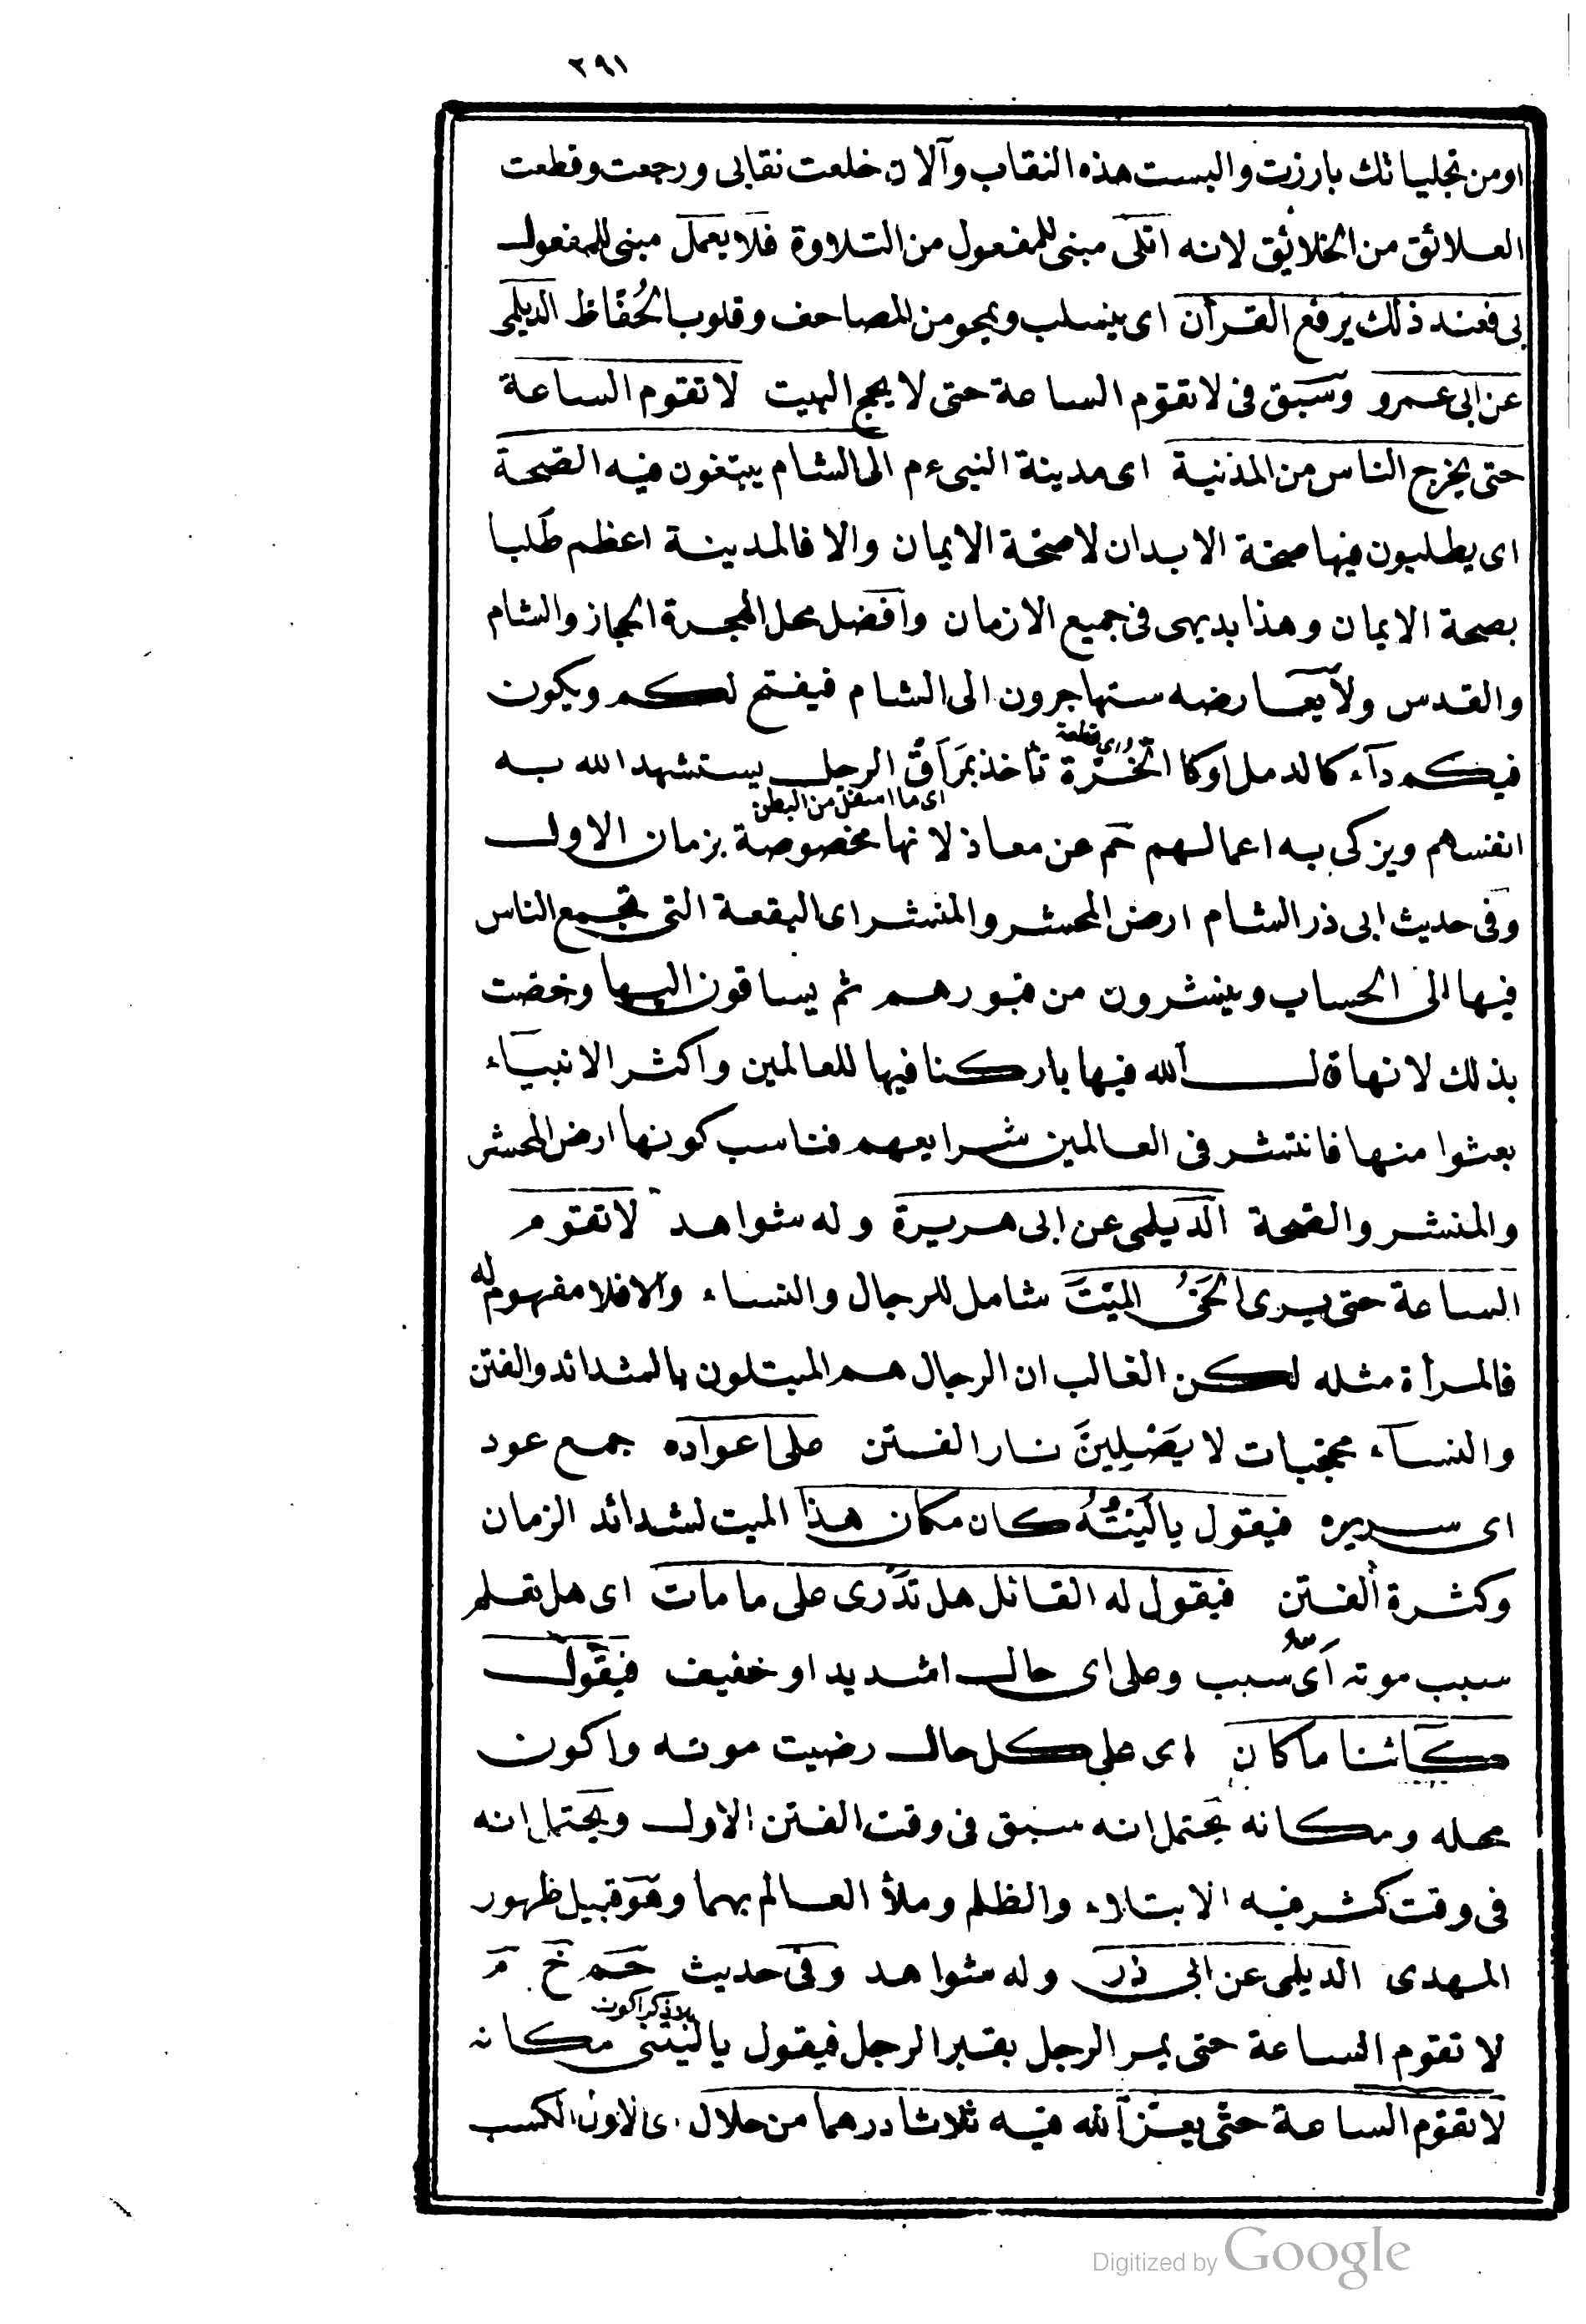 ٢٩١
او من تجلياتك بارزت والبست هذه النقاب وآلان خلعت نقابى ورجعت وقطعت
العلائق من الخلائق لانه اتلى مبنى للمفعول من التلاوة فلا يعمل مبنى للمفعول
بى فعند ذلك يرفع القرآن اى ينسلب ويمحو من المصاحف وقلوب الحُفّاظ الديلمى
عن ابى عمرو وسَبَق فى لا تقوم الساعة حتى لا يحج البيت لا تقوم الساعة
حتى يخرج الناس من المدنية اى مدينة النبى ءم الى الشام يبتغون فيه الصحة
اى يطلبون فيها صحة الابدان لا صحة الايمان والا فالمدينة اعظم طلبا
بصحة الايمان وهذا بديهى فى جميع الازمان وافضل محل الهجرة الحجاز والشام
والقدس ولا يعارضه ستهاجرون الى الشام فيفتح لكم ويكون
فيكم دآء كالدمل اوكا الخرّة تأخذ بمَرَاقّ الرجل يستشهد الله به
اى قطعة
اى ما اسفل من البطن
انفسهم ويزكى به اعمالهم حم عن معاذ لانها مخصوصة بزمان الاول
وفى حديث ابى ذر الشام ارض المحشر والمنشر اى البقعة التى تجمع الناس
فيها الى الحساب وينشرون من قبورهم ثم يساقون اليها وخصت
بذلك لانها قال الله فيها باركنا فيها للعالمين واكثر الانبيآء
بعثوا منها فانتشر فى العالمين شرايعهم فناسب كونها ارض المحشر
والمنشر والصحة الديلمى عن ابى هريرة وله شواهد لا تقوم
الساعة حتى يرى الحَىُّ الميّتَ شامل للرجال والنساء والا فلا مفهوم له
فالمرأة مثله لكن الغالب ان الرجال هم المبتلون بالشدائد والفتن
والنسآء محجبات لا يَصْلِينَ نار الفتن على اعواده جمع عود
اى سريره فيقول يا لَيْتَهُ كان مكان هذا الميت لشدائد الزمان
وكثرة الفتن فيقول له القائل هل تدرى على ما مات اى هل تعلم
سبب موته اىّ سبب وعلى اى حال اشديد او خفيف فيقول
كائنا ما كان اى على كل حال رضيت موته واكون
محله ومكانه يحتمل انه سبق فى وقت الفتن الاول ويحتمل انه
فى وقت كثر فيه الابتلاء والظلم وملأ العالم بهما وهو قبيل ظهور
المهدى الديلمى عن ابى ذر وله شواهد وفى حديث حم خ م
لا تقوم الساعة حتى يمر الرجل بقبر الرجل فيقول يا ليتنى مكانه
بلا ذكر اكون
لا تقوم الساعة حتى يعز الله فيه ثلاثا درهما من حلال اى لان الكسب
Digitized by Google